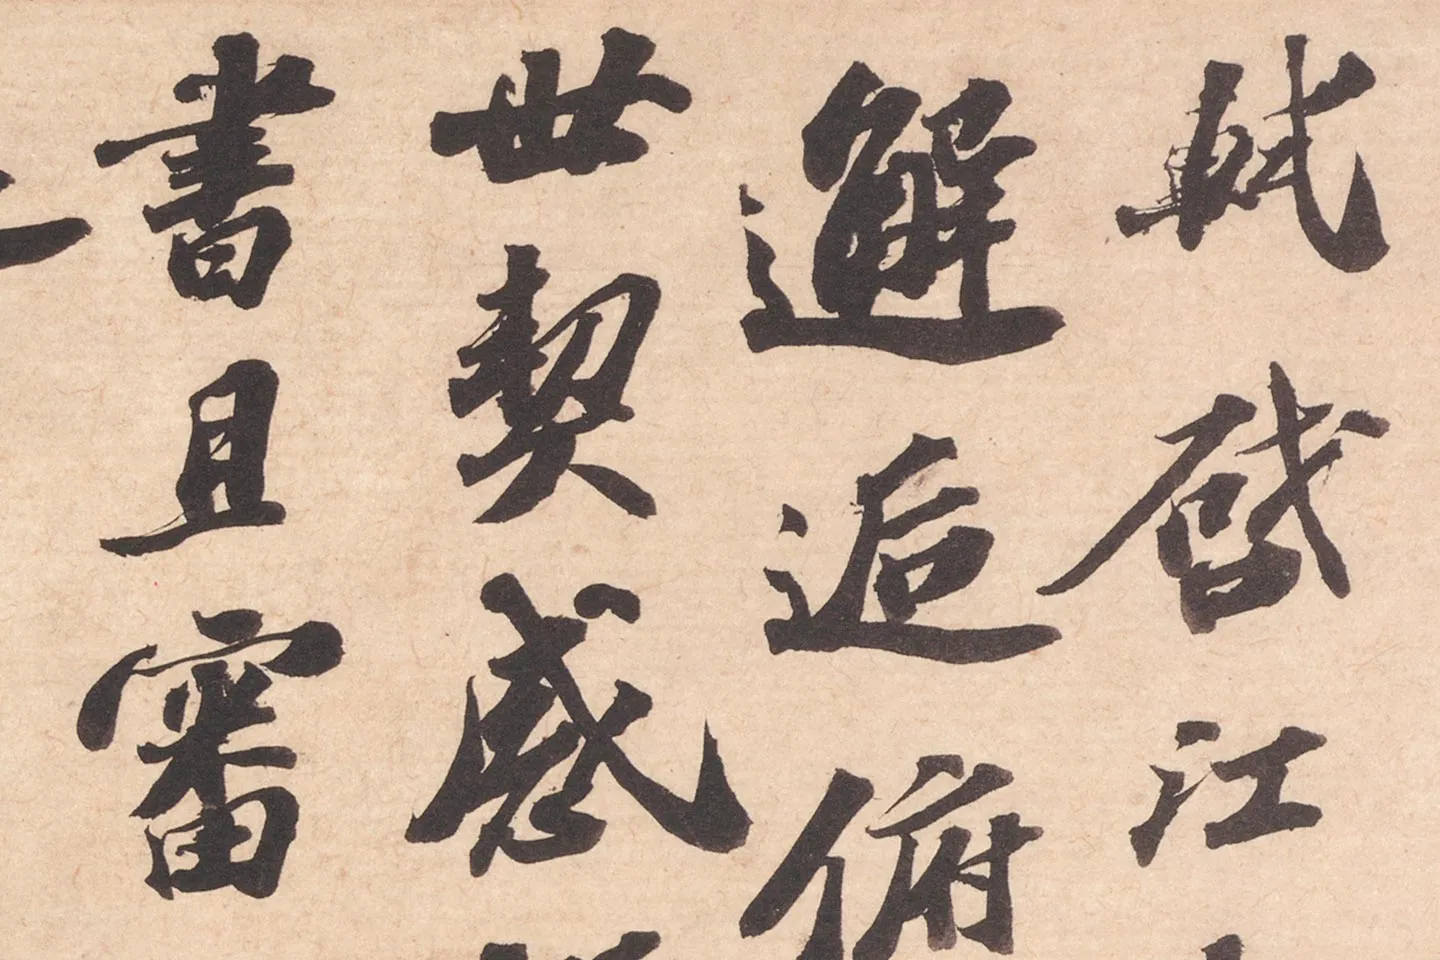 軾啓江
邂逅俯
世契感
書且審